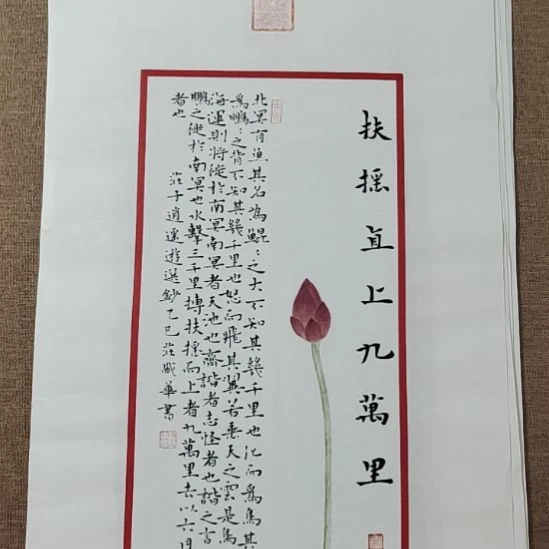 扶搖直上九萬里
北冥有魚其名為鯤〻之大不知其幾千里也化而為鳥其
為鵬〻之背不知其幾千里也怒而飛其翼若垂天之雲是鳥
海運則將徙於南冥南冥者天池也齊諧者志怪者也諧之言
鵬之徙於南冥也水擊三千里摶扶搖而上者九萬里去以六月
者也
莊子逍遙遊選鈔乙巳莊 華書